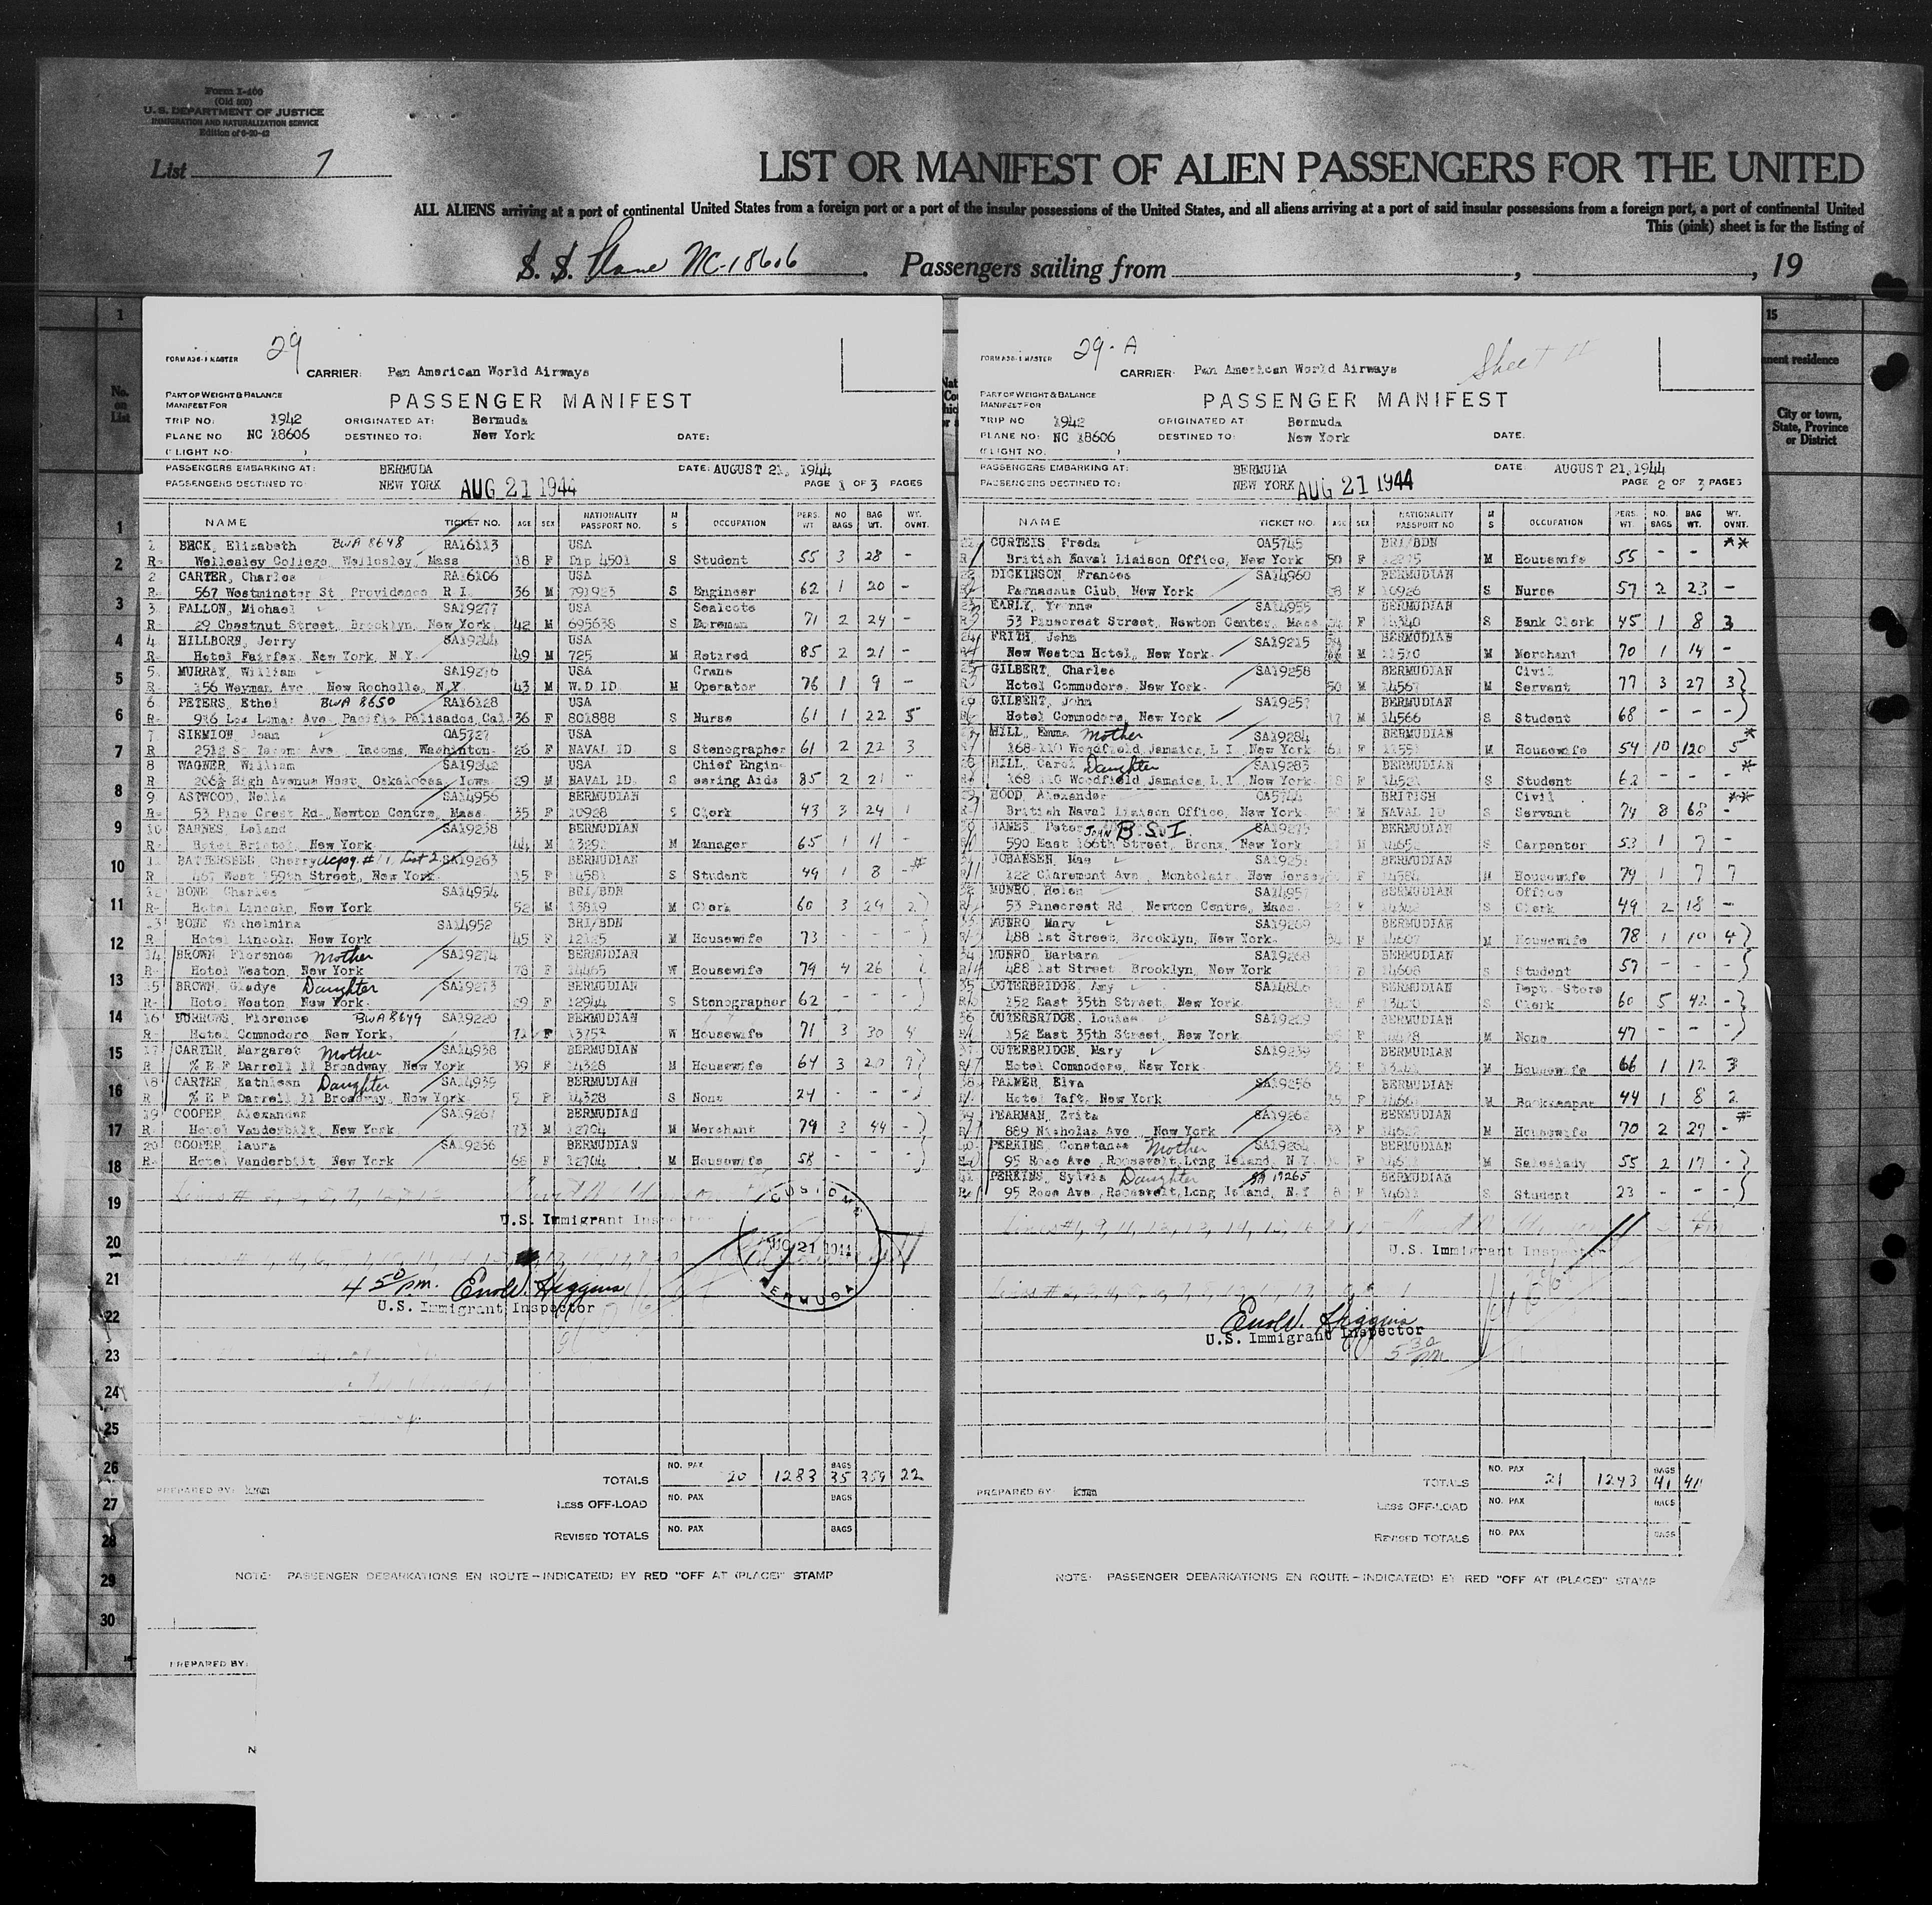 Form I-400
(Old 500)
U. S. DEPARTMENT OF JUSTICE
IMMIGRATION AND NATURALIZATION SERVICE
List 7
LIST OR MANIFEST OF ALIEN PASSENGERS FOR THE UNITED
ALL ALIENS arriving at a port of continental United States from a foreign port or a port of the insular possessions of the United States, and all aliens arriving at a port of said insular possessions from a foreign port, a port of continental United
This (pink) sheet is for the listing of
S. S. Plane NC-18606 . Passengers sailing from , , 19
29
CARRIER: Pan American World Airways
PART OF WEIGHT & BALANCE
MANIFEST FOR
PASSENGER MANIFEST
TRIP NO: 1942 ORIGINATED AT: Bermuda
PLANE NO NC 18606 DESTINED TO: New York DATE:
(FLIGHT NO: )
PASSENGERS EMBARKING AT: BERMUDA DATE: AUGUST 21, 1944
PASSENGERS DESTINED TO: NEW YORK AUG 21 1944 PAGE 1 OF 3 PAGES
NAME TICKET NO. AGE SEX NATIONALITY PASSPORT NO. M S OCCUPATION PERS. WT NO BAGS BAG WT. WT. OVNT.
1 BECK, Elizabeth BWA 8648 RA16113 USA
R- Wellesley College, Wellesley, Mass 18 F Dip 4501 S Student 55 3 28 -
2 CARTER, Charles RA16106 USA
R- 567 Westminster St Providence R I 36 M 791923 S Engineer 62 1 20 -
3 FALLON, Michael SA19277 USA Sealcote
R- 29 Chestnut Street, Brooklyn, New York 42 M 695638 S Foreman 71 2 24 -
4 HILLBORN, Jerry SA19244 USA
R Hotel Fairfax, New York, N.Y. 49 M 725 M Retired 85 2 21 -
5 MURRAY, William SA19276 USA Crane
R- 156 Weyman Ave New Rochelle, N.Y 43 M W.D ID M Operator 76 1 9 -
6 PETERS, Ethel BWA 8650 RA16128 USA
R- 916 Las Lomas Ave Pacific Palisades, Cal 36 F 801888 S Nurse 61 1 22 5
7 SIEMION, Joan OA5727 USA
R Tacoma, Washinton 26 F NAVAL ID S Stenographer 61 2 22 3
8 WAGNER, William SA19242 USA Chief Engin-
R 206½ High Avenue West, Oskaloosa Iowa 29 M NAVAL ID S eering Aide 85 2 21 -
9 ASTWOOD, Nella SA14956 BERMUDIAN
R- 53 Pine Crest Rd- Newton Centre, Mass 35 F 10928 S Clerk 43 3 24 1
10 BARNES, Leland SA19238 BERMUDIAN
R- Hotel Bristol, New York 44 M M Manager 65 1 11 -
11 BATTERSBEE, Cherry SA19263 BERMUDIAN
R 467 West 159th Street, New York 15 F 14581 S Student 49 1 8 -*
12 BONE Charles SA14954 BRI/BDN
R- Hotel Lincoln, New York 52 M 13819 M Clerk 60 3 29 2
13 BONE Wilhelmina SA14952 BRI/BDN
R Hotel Lincoln New York 45 F M Housewife 73 - - -
14 BROWN Florence Mother SA19274 BERMUDIAN
R- Hotel Weston, New York 78 F 14465 W Housewife 79 4 26 -
15 BROWN, Gladys Daughter SA19273 BERMUDIAN
R- Hotel Weston New York 29 F 12944 S Stenographer 62 - - -
16 BURROWS, Florence BWA8649 SA19220 BERMUDIAN
R Hotel Commodore New York, 71 F 13753 W Housewife 71 3 30 4
17 CARTER, Margaret Mother SA14938 BERMUDIAN
R % E F Darrell 11 Broadway New York 39 F 14328 M Housewife 64 3 20 1
18 CARTER, Kathleen Daughter SA14939 BERMUDIAN
R % E F Darrell 11 Broadway, New York 5 F 14328 S None 24 - - -
19 COOPER, Alexander SA19267 BERMUDIAN
R- Hotel Vanderbilt, New York 73 M 12704 M Merchant 79 3 44 -
20 COOPER, Laura SA19266 BERMUDIAN
R- Hotel Vanderbilt, New York 68 F 12704 M Housewife 58 - - -
U.S. Immigrant Inspector
CUSTOMS AUG 21 1944 BERMUDA
4 50 pm. Enol W. Higgins
U.S. Immigrant Inspector
TOTALS NO. PAX 20 1283 BAGS 35 359 22
PREPARED BY:
LESS OFF-LOAD NO. PAX BAGS
REVISED TOTALS NO. PAX BAGS
NOTE: PASSENGER DEBARKATIONS EN ROUTE-INDICATE(D) BY RED "OFF AT (PLACE)" STAMP
PREPARED BY:
29-A
CARRIER: Pan American World Airways
PART OF WEIGHT & BALANCE
MANIFEST FOR
PASSENGER MANIFEST
TRIP NO 1942 ORIGINATED AT: Bermuda
PLANE NO: NC 18606 DESTINED TO: New York DATE:
(FLIGHT NO: )
PASSENGERS EMBARKING AT: BERMUDA DATE AUGUST 21, 1944
PASSENGERS DESTINED TO: NEW YORK AUG 21 1944 PAGE 2 OF 3 PAGES
NAME TICKET NO. AGE SEX NATIONALITY PASSPORT NO M S OCCUPATION PERS. WT. NO. BAGS BAG WT. WT. OVNT.
CURTEIS Freda OA5745 BRI/BDN **
British Naval Liaison Office, New York 50 F M Housewife 55 - -
DICKINSON, Frances SA14960 BERMUDIAN
Parnassus Club, New York F 10926 S Nurse 57 2 23 -
EARLY, Yvonne SA14955 BERMUDIAN
53 Pinecrest Street, Newton Center, Mass F S Bank Clerk 45 1 8 3
FRITH, John SA19215 BERMUDIAN
New Weston Hotel, New York M M Merchant 70 1 14 -
GILBERT, Charles SA19258 BERMUDIAN Civil
Hotel Commodore, New York 50 M 14567 M Servant 77 3 27 3
GILBERT, John SA19257 BERMUDIAN
Hotel Commodore, New York 17 M 14566 S Student 68 - - -
HILL, Emma Mother SA19284 BERMUDIAN *
168-110 Woodfield, Jamaica, L I New York F M Housewife 54 10 120 5
HILL, Carol Daughter SA19283 BERMUDIAN *
168 110 Woodfield Jamaica, L I New York F S Student 62 - - -
HOOD, Alexander OA5744 BRITISH Civil **
British Naval Liaison Office, New York M NAVAL ID S Servant 74 8 68 -
JAMES, Peter John B.S.I. SA19275 BERMUDIAN
590 East 166th Street, Bronx, New York S Carpenter 53 1 7 -
JOHANSEN, Mae BERMUDIAN
122 Claremont Ave Montclair New Jersey M Housewife 79 1 7 7
MUNRO, Helen BERMUDIAN Office
53 Pinecrest Rd Newton Centre, Mass. S Clerk 49 2 18 -
MUNRO Mary SA19269 BERMUDIAN
488 1st Street, Brooklyn, New York F 14607 M Housewife 78 1 10 4
MUNRO Barbara SA19268 BERMUDIAN
488 1st Street Brooklyn, New York 14608 S Student 57 - - -
OUTERBRIDGE, Amy SA14846 BERMUDIAN Dept. Store
152 East 35th Street, New York S Clerk 60 5 42 -
OUTERBRIDGE, Louise BERMUDIAN
152 East 35th Street, New York M None 47 - - -
OUTERBRIDGE, Mary SA19239 BERMUDIAN
Hotel Commodore, New York M Housewife 66 1 12 3
PALMER, Elva SA19256 BERMUDIAN
Hotel Taft, New York F M Bookkeeper 44 1 8 2
PEARMAN, Zvita SA19262 BERMUDIAN *
889 Nicholas Ave New York F M Housewife 70 2 29 -
PERKINS, Constance Mother SA19264 BERMUDIAN
95 Rose Ave, Roosevelt, Long Island, N.Y. F M Saleslady 55 2 17 -
PERKINS, Sylvia Daughter SA 19265 BERMUDIAN
95 Rose Ave, Roosevelt, Long Island, N.Y 8 F 14611 S Student 23 - - -
U.S. Immigrant Inspector
Enol W. Higgins
U.S. Immigrant Inspector
5 30 pm
TOTALS NO. PAX 21 1243 BAGS 41 41
PREPARED BY:
LESS OFF-LOAD NO. PAX BAGS
REVISED TOTALS NO. PAX BAGS
NOTE: PASSENGER DEBARKATIONS EN ROUTE-INDICATE(D) BY RED "OFF AT (PLACE)" STAMP
No. on List
1
2
3
4
5
6
7
8
9
10
11
12
13
14
15
16
17
18
19
20
21
22
23
24
25
26
27
28
29
30
15
City or town, State, Province or District